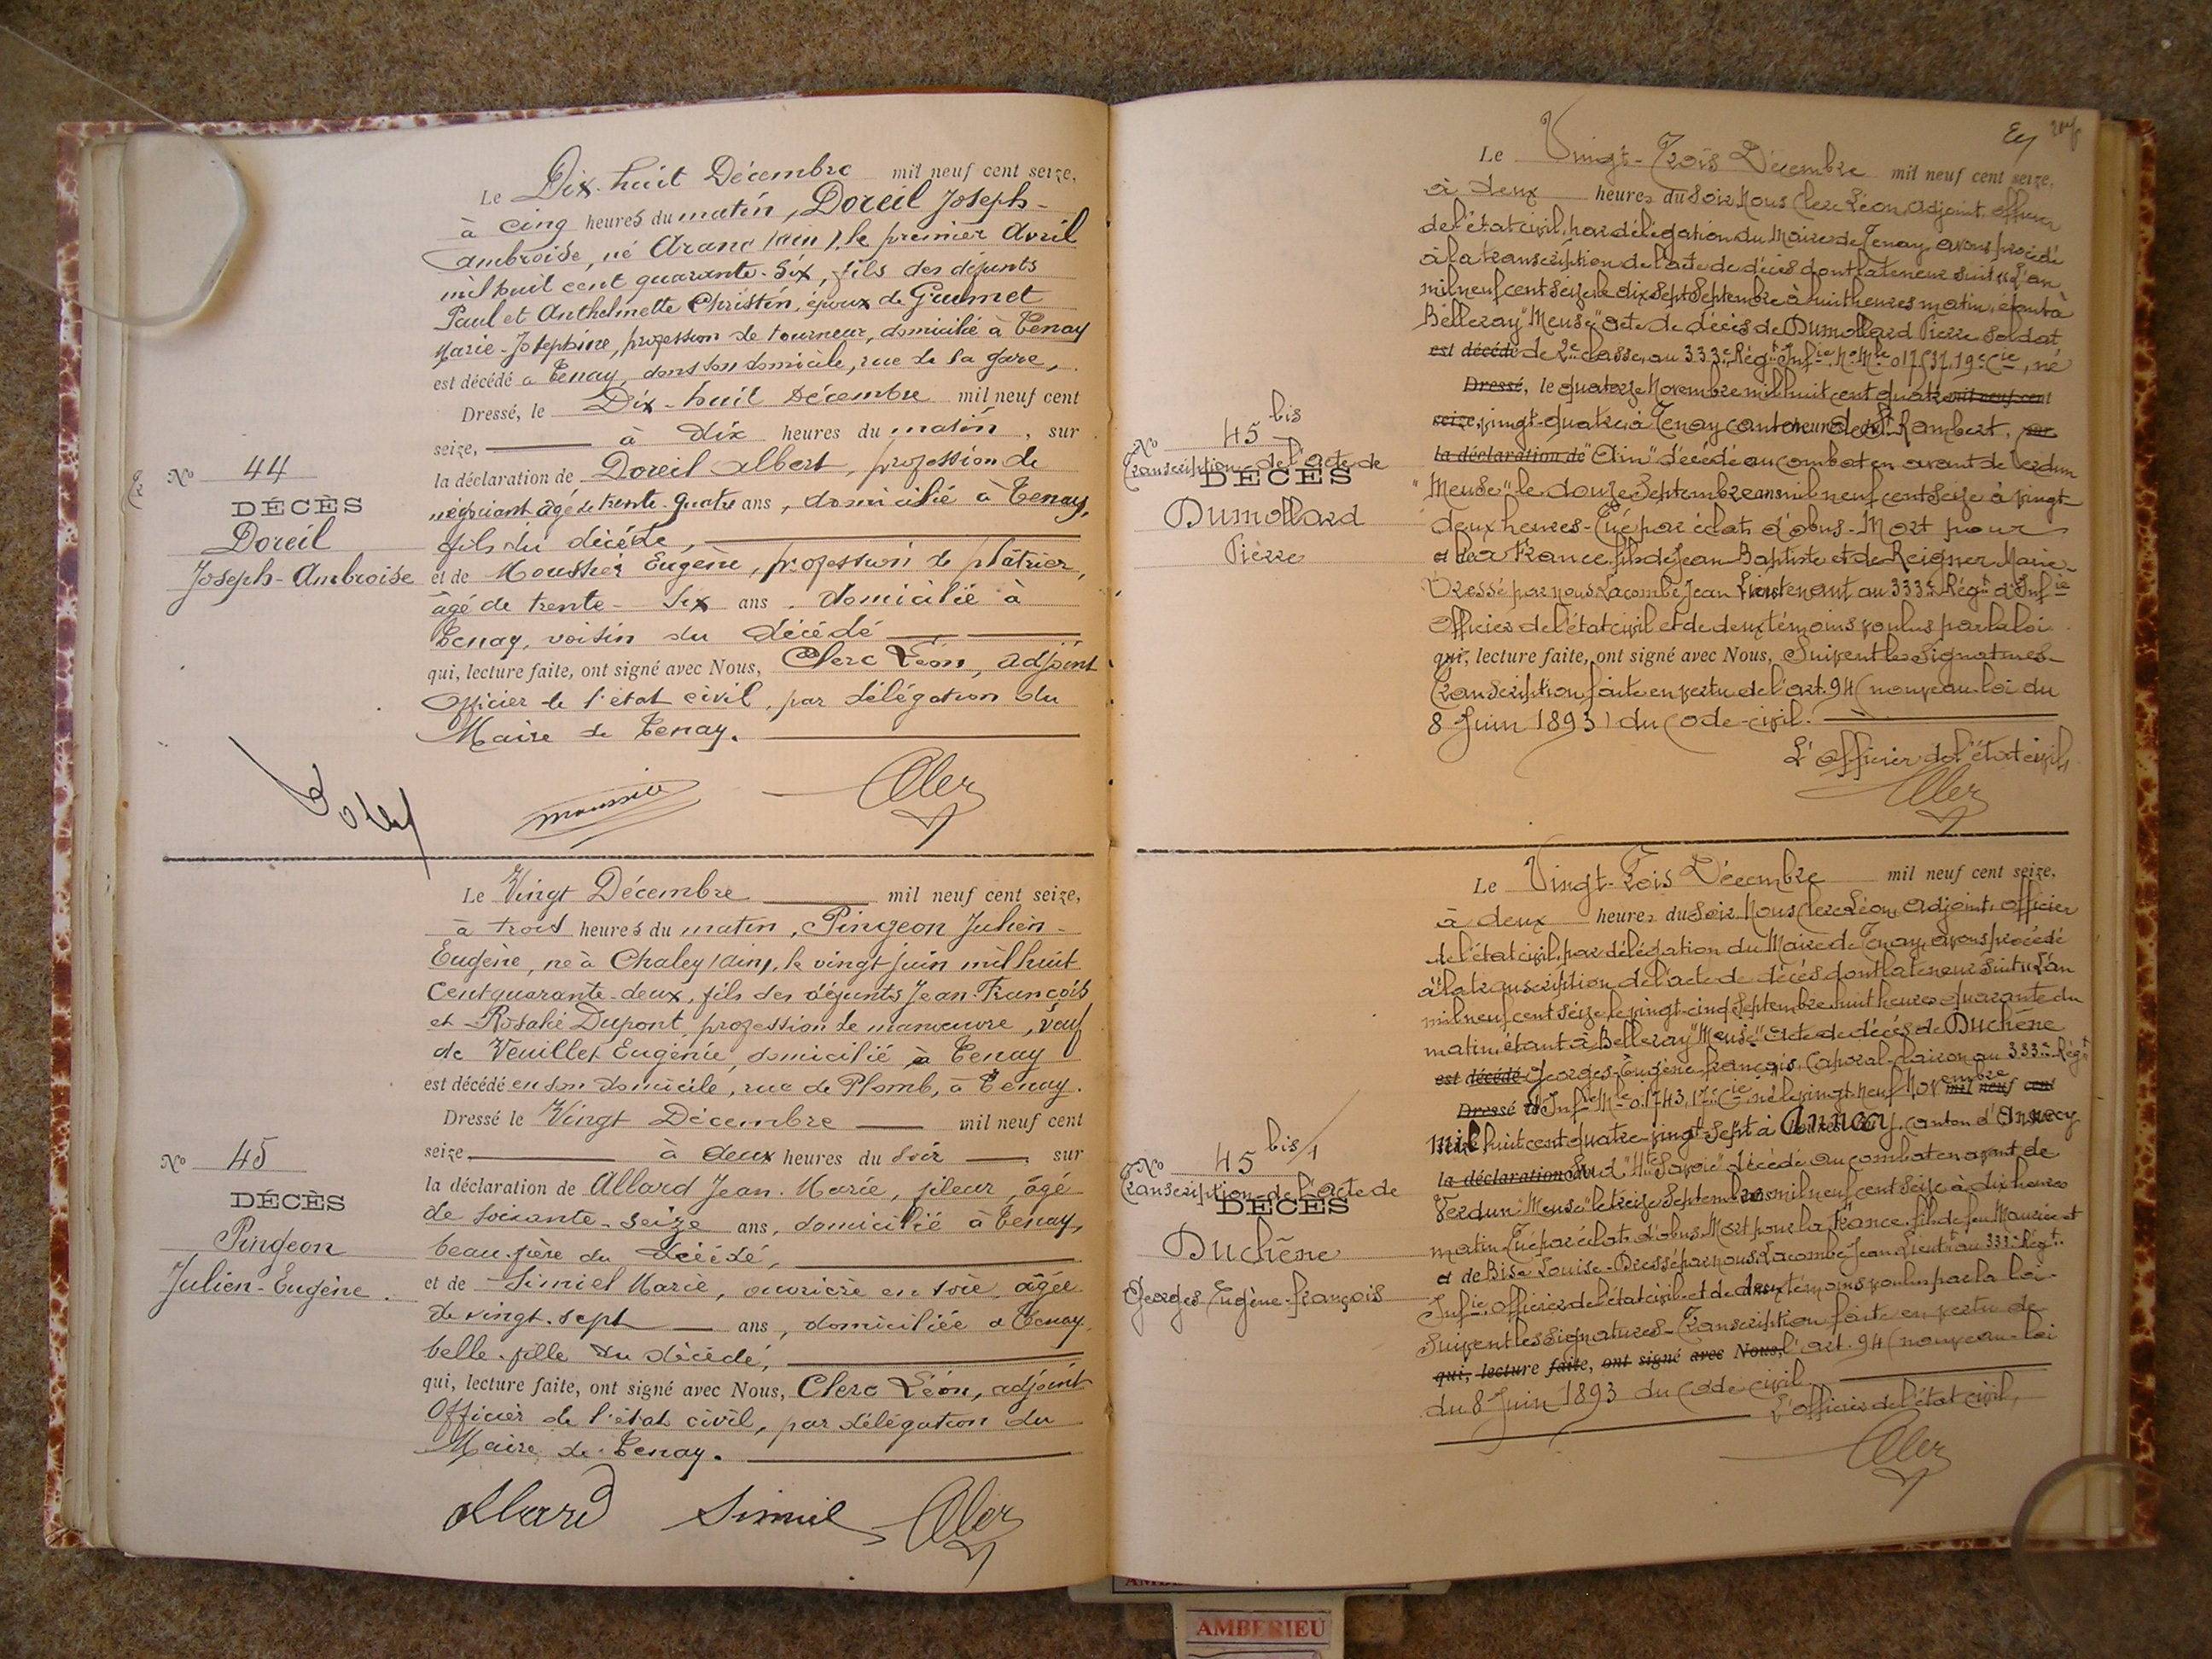 Le Dix-huit Décembre mil neuf cent seize,
à cinq heures du matin, Doreil Joseph-
ambroise, né Aranc (ain), le premier Avril
mil huit cent quarante-six, fils des défunts
Paul et Anthelmette Christin, époux de Guimet
Marie-Joséphine, profession de tourneur, domicilié à Tenay
est décédé a Tenay, dans son domicile, rue de la gare,
Dressé, le Dix-huit Décembre mil neuf cent
seize, à dix heures du matin, sur
la déclaration de Doreil albert, profession de
négociant âgé de trente-quatre ans, domicilié à Tenay,
fils du décédé,
et de Moussier Eugène, profession de plâtrier,
âgé de trente-six ans, domicilié à
Tenay, voisin du décédé
qui, lecture faite, ont signé avec Nous, Clerc Léon, adjoint
Officier de l'état civil, par délégation du
Maire de Tenay.
No 44
DÉCÈS
Doreil
Joseph-Ambroise
Le Vingt Décembre mil neuf cent seize,
à trois heures du matin, Pingeon Julien-
Eugène, né à Chaley (ain), le vingt juin mil huit
cent quarante-deux, fils des défunts Jean-François
et Rosalie Dupont, profession de manœuvre, veuf
de Veuillet Eugénie, domicilié à Tenay
est décédé en son domicile, rue de Plomb, à Tenay.
Dressé le Vingt Décembre mil neuf cent
seize à deux heures du soir, sur
la déclaration de Allard Jean-Marie, fileur, âgé
de soixante-seize ans, domicilié à Tenay,
beau-père du décédé,
et de Simiel Marie, ouvrière en soie, âgée
de vingt-sept ans, domiciliée a Tenay
belle-fille du décédé,
qui, lecture faite, ont signé avec Nous, Clerc Léon, adjoint
Officier de l'état civil, par délégation du
Maire de Tenay.
No 45
DÉCÈS
Pingeon
Julien-Eugène.
Le Vingt-Trois Décembre mil neuf cent seize,
à deux heures du soir Nous Clerc Léon, adjoint, officier
de l'état civil, par délégation du Maire de Tenay, avons procédé
à la transcription de l'acte de décès dont la teneur suit: "L'an
mil neuf cent seize le dix sept Septembre à huit heures matin, étant à
Belleray "Meuse" acte de décès de Dumollard Pierre soldat
est décédé de 2e classe, au 333e Régt Infie, No Mle 017537, 19e Cie, né
Dressé, le quatorze Novembre mil huit cent quatre mil neuf cent
seize, vingt-quatre, à Tenay canton de St Rambert, sur
la déclaration de "Ain" décédé au combat en avant de Verdun
"Meuse" le douze Septembre mil neuf cent seize à vingt
deux heures-Tué par éclats d'obus-Mort pour
et la France, fils de Jean Baptiste et de Reigner Marie-
Dressé par nous Lacombe Jean Lieutenant au 333e Régt d'Infie
Officier de l'état civil et de deux témoins voulus par la loi.
qui, lecture faite, ont signé avec Nous, Suivent les signatures-
Transcription faite en vertu de l'art. 94 (nouveau-loi du
8 Juin 1893) du Code-civil.
L'officier de l'état civil,
No 45 bis
Transcription de l'acte de
DÉCÈS
Dumollard
Pierre
Le Vingt-Trois Décembre mil neuf cent seize,
à deux heures du soir Nous Clerc Léon, adjoint, officier
de l'état civil, par délégation du Maire de Tenay, avons procédé
à la transcription de l'acte de décès dont la teneur suit: "L'an
mil neuf cent seize le vingt-cinq Septembre huit heures quarante du
matin, étant à Belleray "Meuse" acte de décès de Duchêne
est décédé Georges-Eugène-françois, Caporal-clairon au 333e Régt
Dressé d'Infie Mle 01743, 17e Cie, né le vingt-neuf Novembre mil neuf cent
mil huit cent quatre vingt sept à Annecy, canton d'Annecy
la déclaration Sud "Hte Savoie" décédé au combat en avant de
Verdun "Meuse" le treize Septembre mil neuf cent seize à dix heures
matin-Tué par éclats d'obus, Mort pour la France, fils de feu Maurice et
et de Bise Louise-Dressé par nous, Lacombe Jean Lieutt au 333e Régt.
Infie, officier de l'état civil et de deux témoins voulus par la loi-
Suivent les signatures-Transcription faite en vertu de
qui, lecture faite, ont signé avec Nous, l'art. 94 (nouveau-loi
du 8 Juin 1893 du code civil.
L'officier de l'état civil,
No 45 bis/1
Transcription de l'acte de
DÉCÈS
Duchêne
Georges Eugène-françois
AMBERIEU